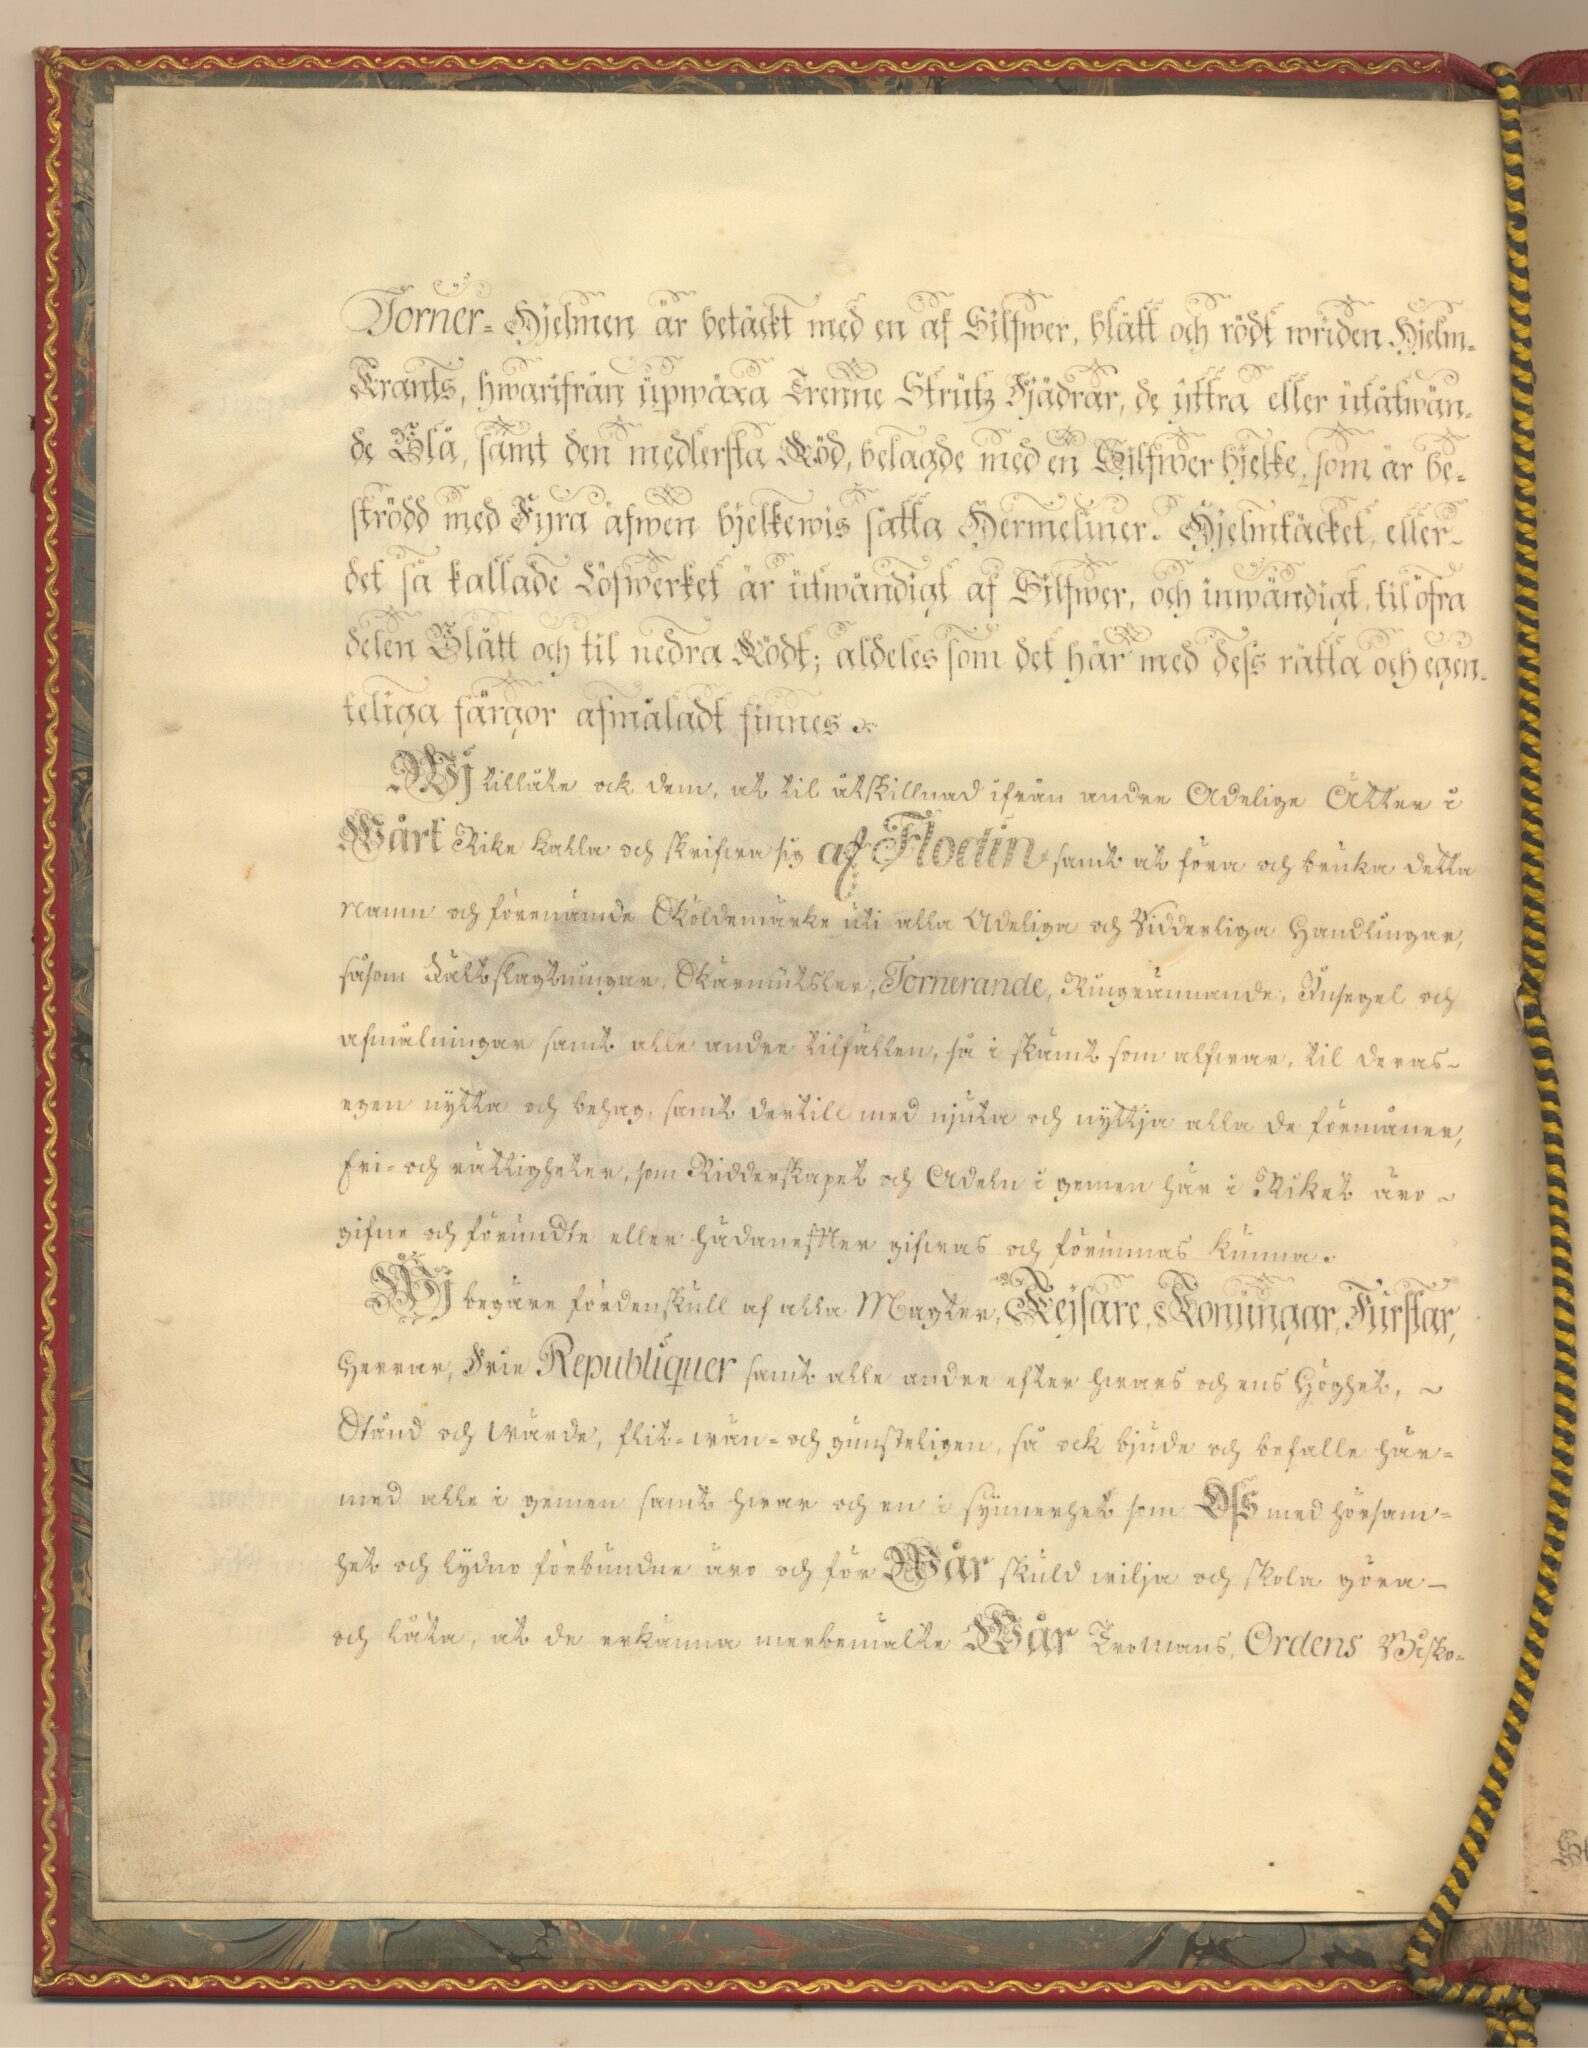 Torner-Hjelmen är betäckt med en af Silfwer, blått och rödt wriden Hjelm-
Krants, hwarifrån üpwäxa Trenne Strütz Fjädrar, de ÿttra eller ütåtwän-
de Blå, samt den medlersta Röd, belagde med en Silfwer bjelke, som är be-
strödd med Fyra äfwen bjelkewis satta Hermeliner. Hjelmtäcket, eller
det så kallade Löfwerket är ütwändigt af Silfwer, och inwändigt, til öfra
delen Blått och til nedra Rödt; aldeles som det här med dess rätta och egen-
teliga färgor afmåladt finnes.
Wj tillåte ock dem, at til åtskillnad ifrån andre Adelige Ätter i
Wårt Rike kalla och skrifwa sig af Flodin samt at föra och bruka detta
namn och förenämde Sköldemärke uti alla Adeliga och Ridderliga Handlingar,
såsom Fältslagtningar, Skärmütsler, Tornerande, Ringrännande, Insegel och
afmålningar samt alle andre tilfällen, så i skämt som alfwar, til deras
egen nÿtta och behag, samt dertill med njuta och nyttja alla de förmåner,
fri- och rättigheter, som Ridderskapet och Adeln i gemen här i Riket äro
gifne och förundte eller hädanefter gifwas och förunnas kunna.
Wj begäre fördenskull af alla Magter, Kejsare, Konüngar, Fürstar,
Herrar, Frie Republiquer samt alle andre efter hwars och ens Höghet,
Stånd och wärde, flit-wän- och günsteligen, så ock bjude och befalle här-
med alle i gemen samt hwar och en i synnerhet som Oss med hörsam-
het och lydno förbundne äro och för Wår skuld wilja och skola göra
och låta, at de erkänna merbemälte Wår Tromans, Ordens Bisko-